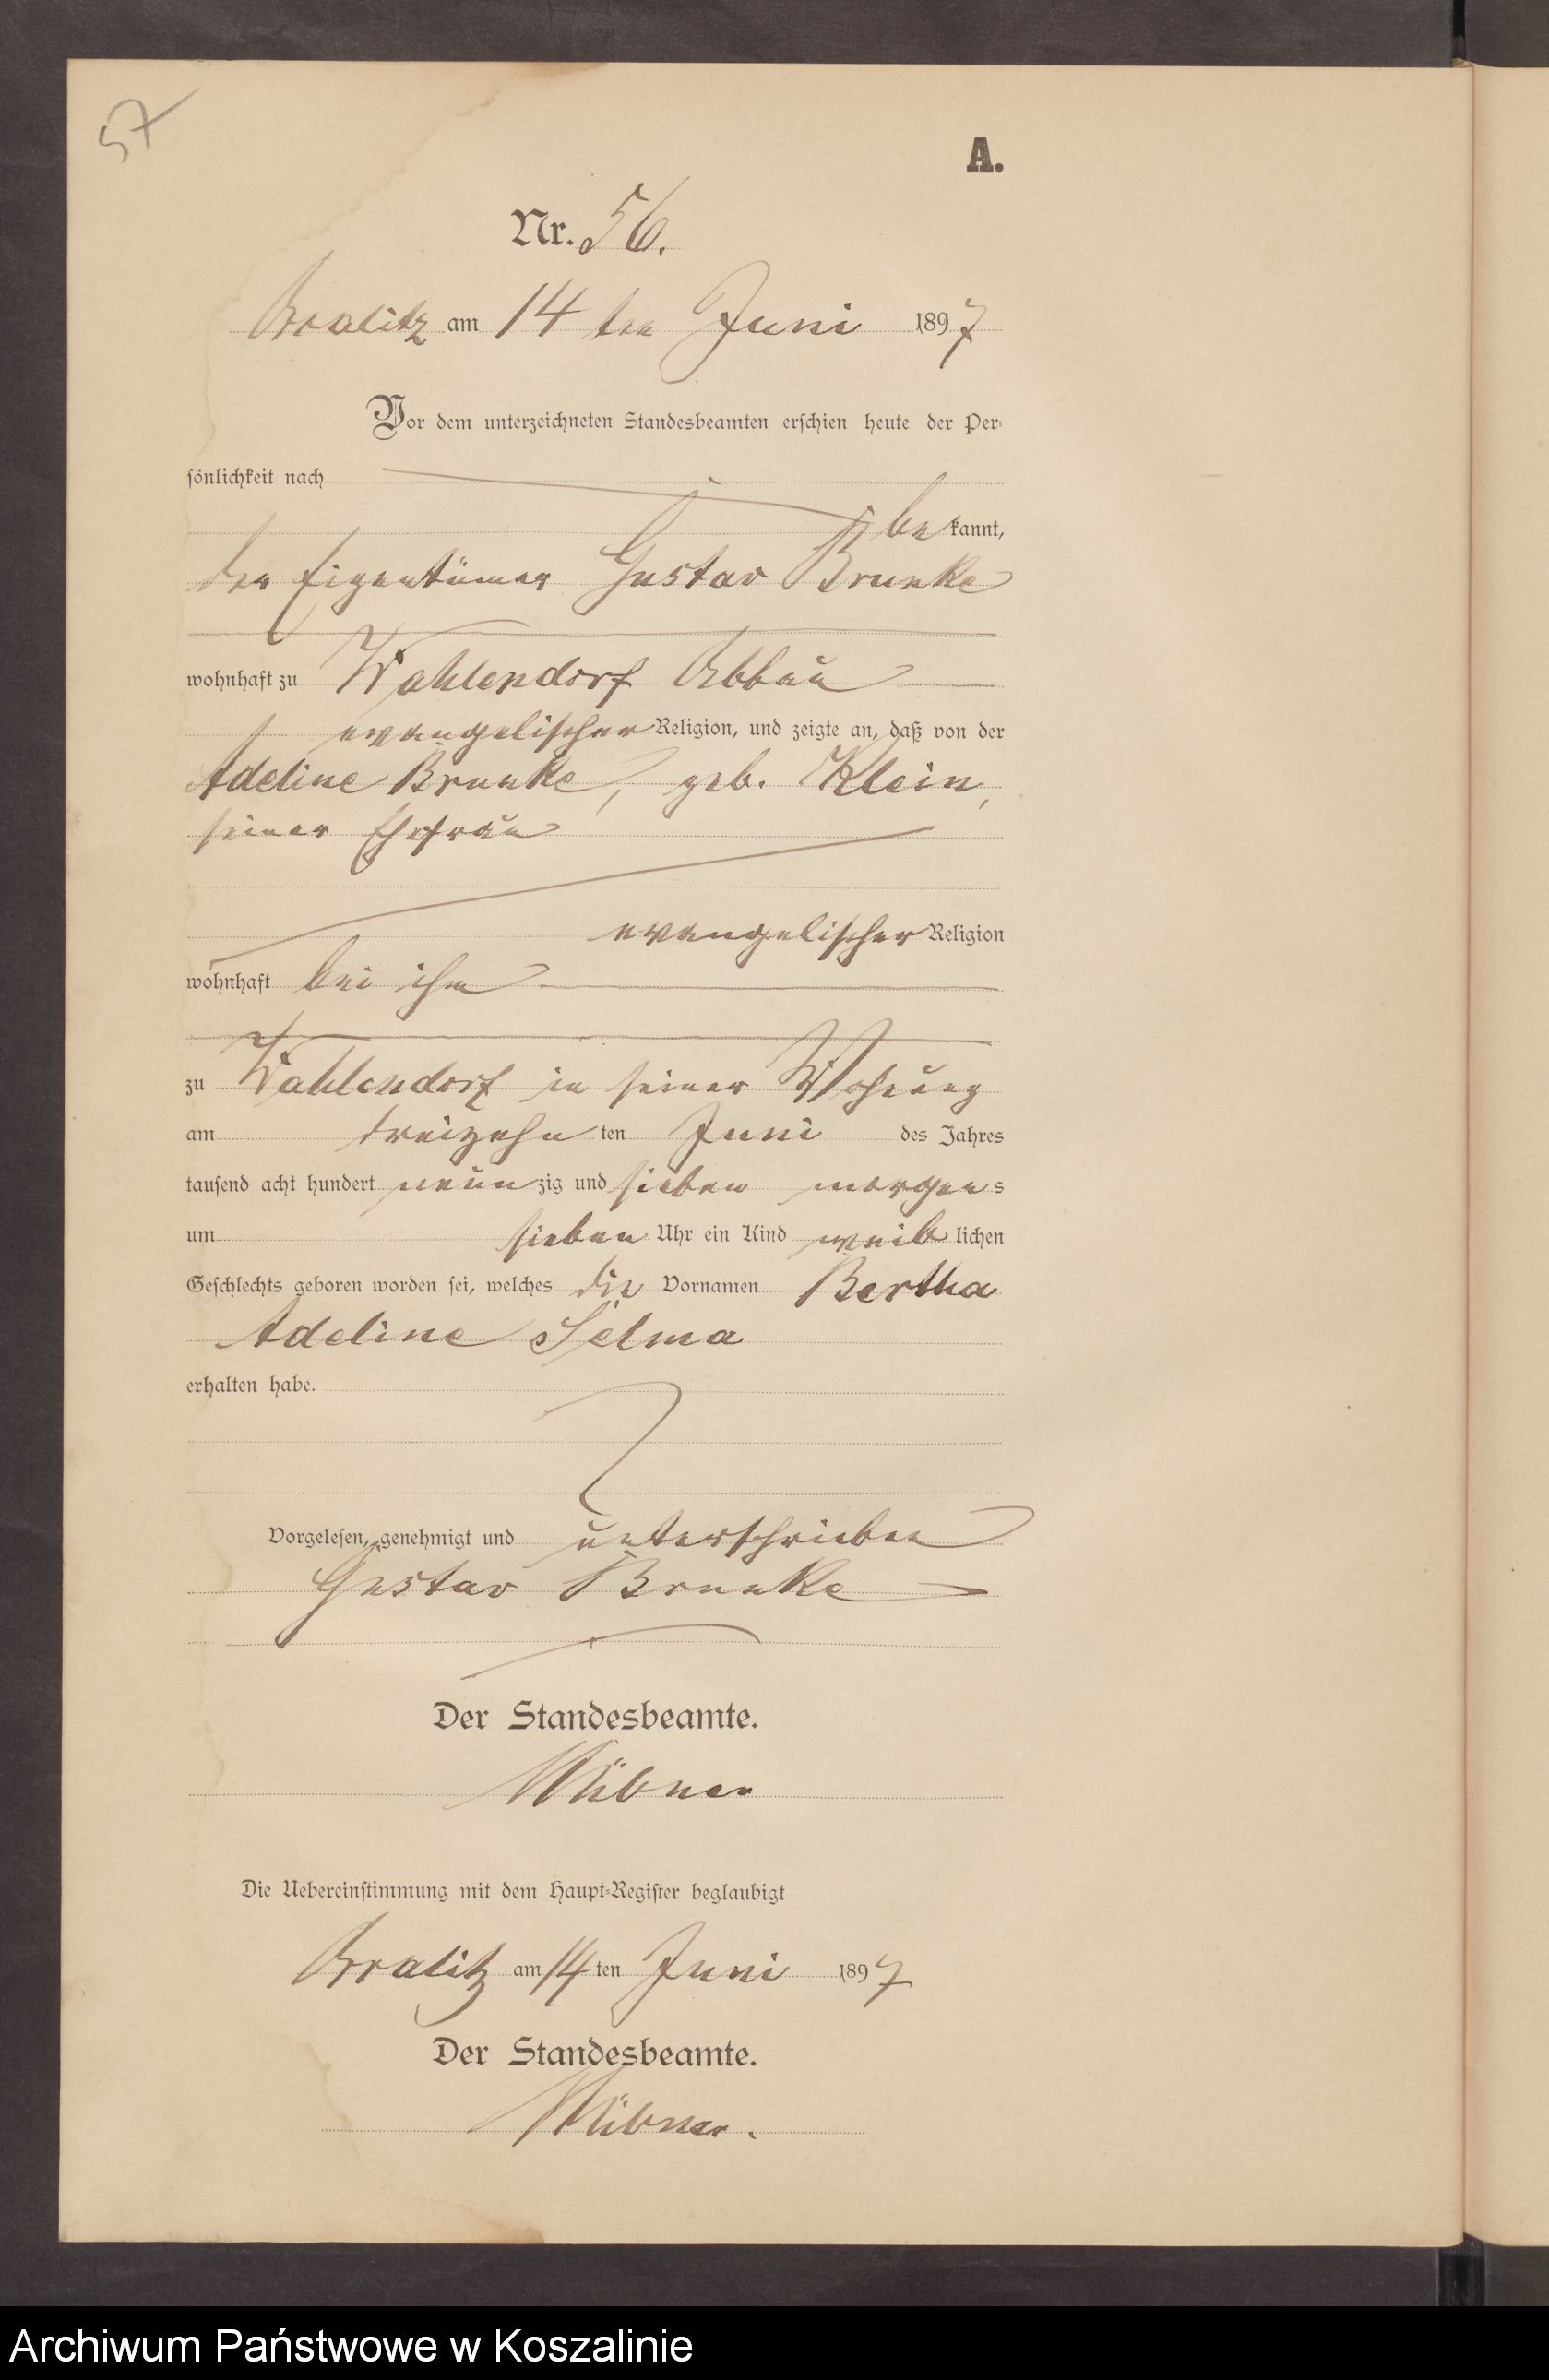 57
A.
Nr. 56.
am 14 ten Juni 1897
Vor dem unterzeichneten Standesbeamten erschien heute der Per-
sönlichkeit nach
be kannt,
der Eigentümer Gustav Brunke
wohnhaft zu Wahlendorf Abbau
evangelischer Religion, und zeigte an, daß von der
Adeline Brunke, geb. Klein,
seiner Ehefrau
evangelischer Religion
wohnhaft bei ihm
zu Wahlendorf in seiner Wohnung
am dreizehn ten Juni des Jahres
tausend acht hundert neun zig und sieben morgens
um sieben Uhr ein Kind weib lichen
Geschlechts geboren worden sei, welches die Vornamen Bertha
Adeline Selma
erhalten habe.
Vorgelesen, genehmigt und unterschrieben
Gustav Brunke
Der Standesbeamte.
Die Uebereinstimmung mit dem Haupt-Register beglaubigt
am 14 ten Juni 1897
Der Standesbeamte.
Archiwum Państwowe w Koszalinie